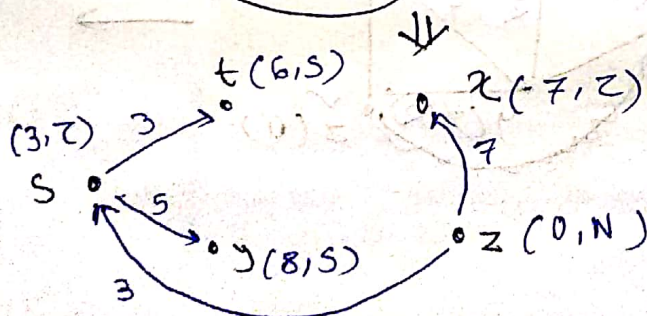 t (6, S)
x (-7, z)
(3, z)
3
7
S
5
y (8, S)
z (0, N)
3